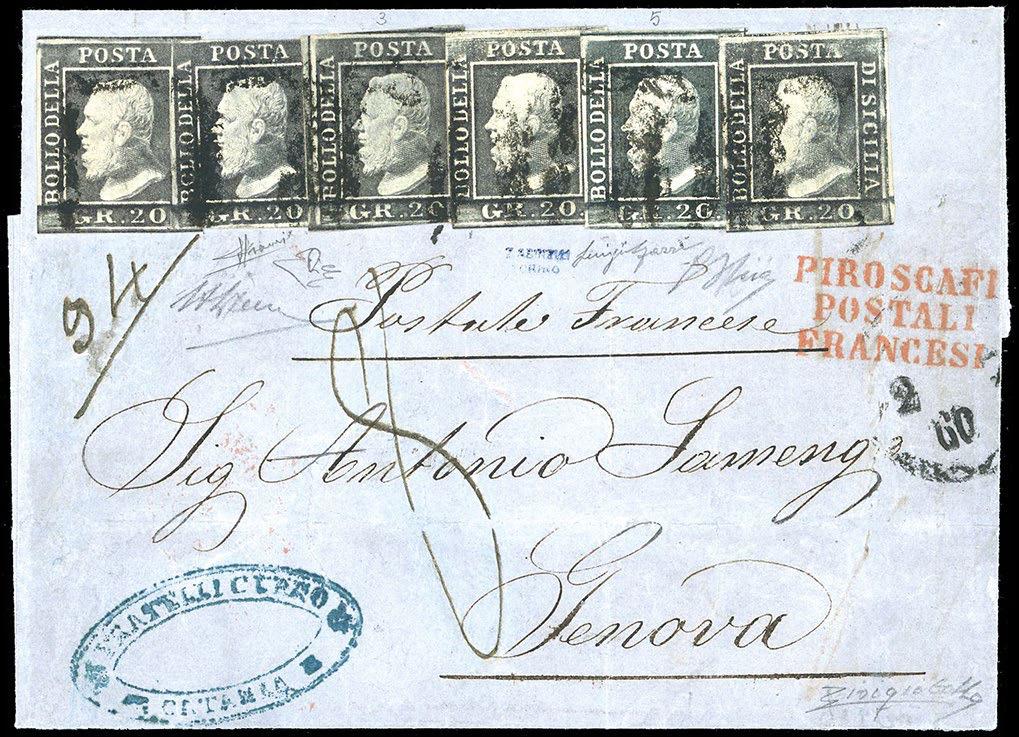 3 5
POSTA POSTA POSTA POSTA POSTA POSTA
BOLLO DELLA BOLLO DELLA BOLLO DELLA BOLLO DELLA BOLLO DELLA DI SICILIA
GR. 20 GR. 20 GR. 20 GR. 20. GR. 20. GR. 20
94
Postale Francese
PIROSCAFI
POSTALI
FRANCESI
2
60
Sig Antonio Sameng
Genova
FRATELLI CUPRO
CATANIA